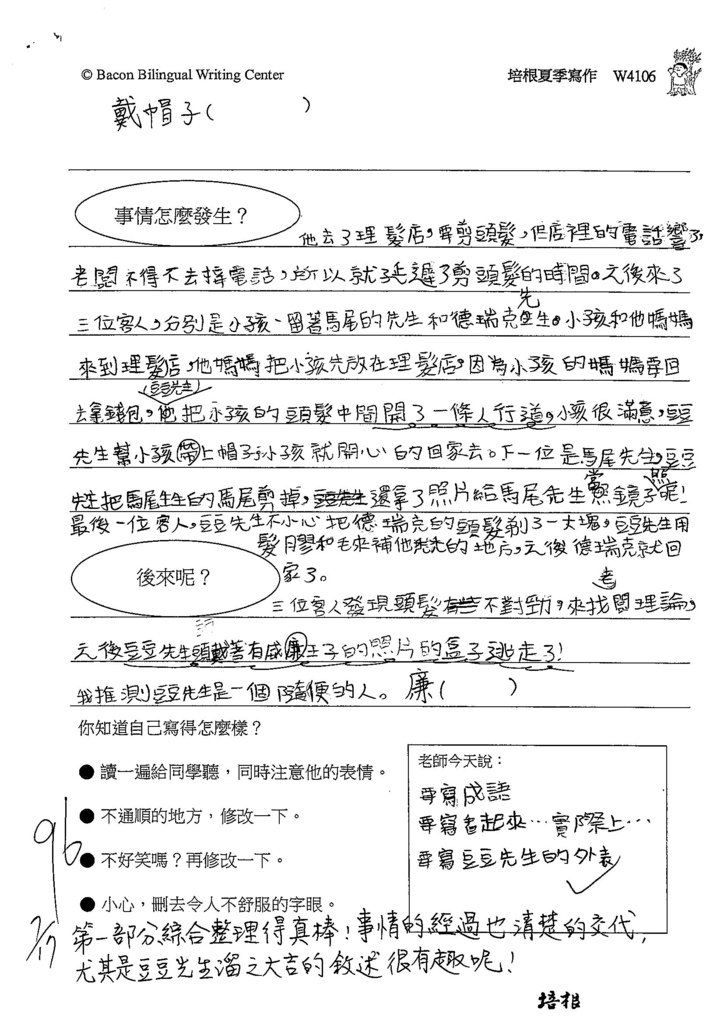 © Bacon Bilingual Writing Center
培根夏季寫作 W4106
戴帽子( )
事情怎麼發生？
他去了理髮店，要剪頭髮，但店裡的電話響了，
老闆不得不去接電話，所以就延遲了剪頭髮的時間。之後來了
三位客人，分別是小孩、留著馬尾的先生和德瑞克先生。小孩和他媽媽
來到理髮店，他媽媽把小孩先放在理髮店，因為小孩的媽媽要回
去拿錢包，豆豆先生把小孩的頭髮中間開了一條人行道，小孩很滿意，豆豆
先生幫小孩帶上帽子，小孩就開心的回家去。下一位是馬尾先生，豆豆
先生把馬尾先生的馬尾剪掉，還拿了照片給馬尾先生當照鏡子呢！
最後一位客人，豆豆先生不小心把德瑞克的頭髮剃了一大塊，豆豆先生用
髮膠和毛來補他禿禿的地方，之後德瑞克就回
家了。
後來呢？
三位客人發現頭髮不對勁，來找老闆理論，
之後豆豆先生頭戴著有威廉王子的照片的盒子逃走了！
我推測豆豆先生是一個隨便的人。 廉( )
你知道自己寫得怎麼樣？
● 讀一遍給同學聽，同時注意他的表情。
● 不通順的地方，修改一下。
● 不好笑嗎？再修改一下。
● 小心，刪去令人不舒服的字眼。
老師今天說：
要寫成語
要寫看起來…實際上…
要寫豆豆先生的外表
96
7/17
第一部分綜合整理得真棒！事情的經過也清楚的交代，
尤其是豆豆先生溜之大吉的敘述很有趣呢！
培根